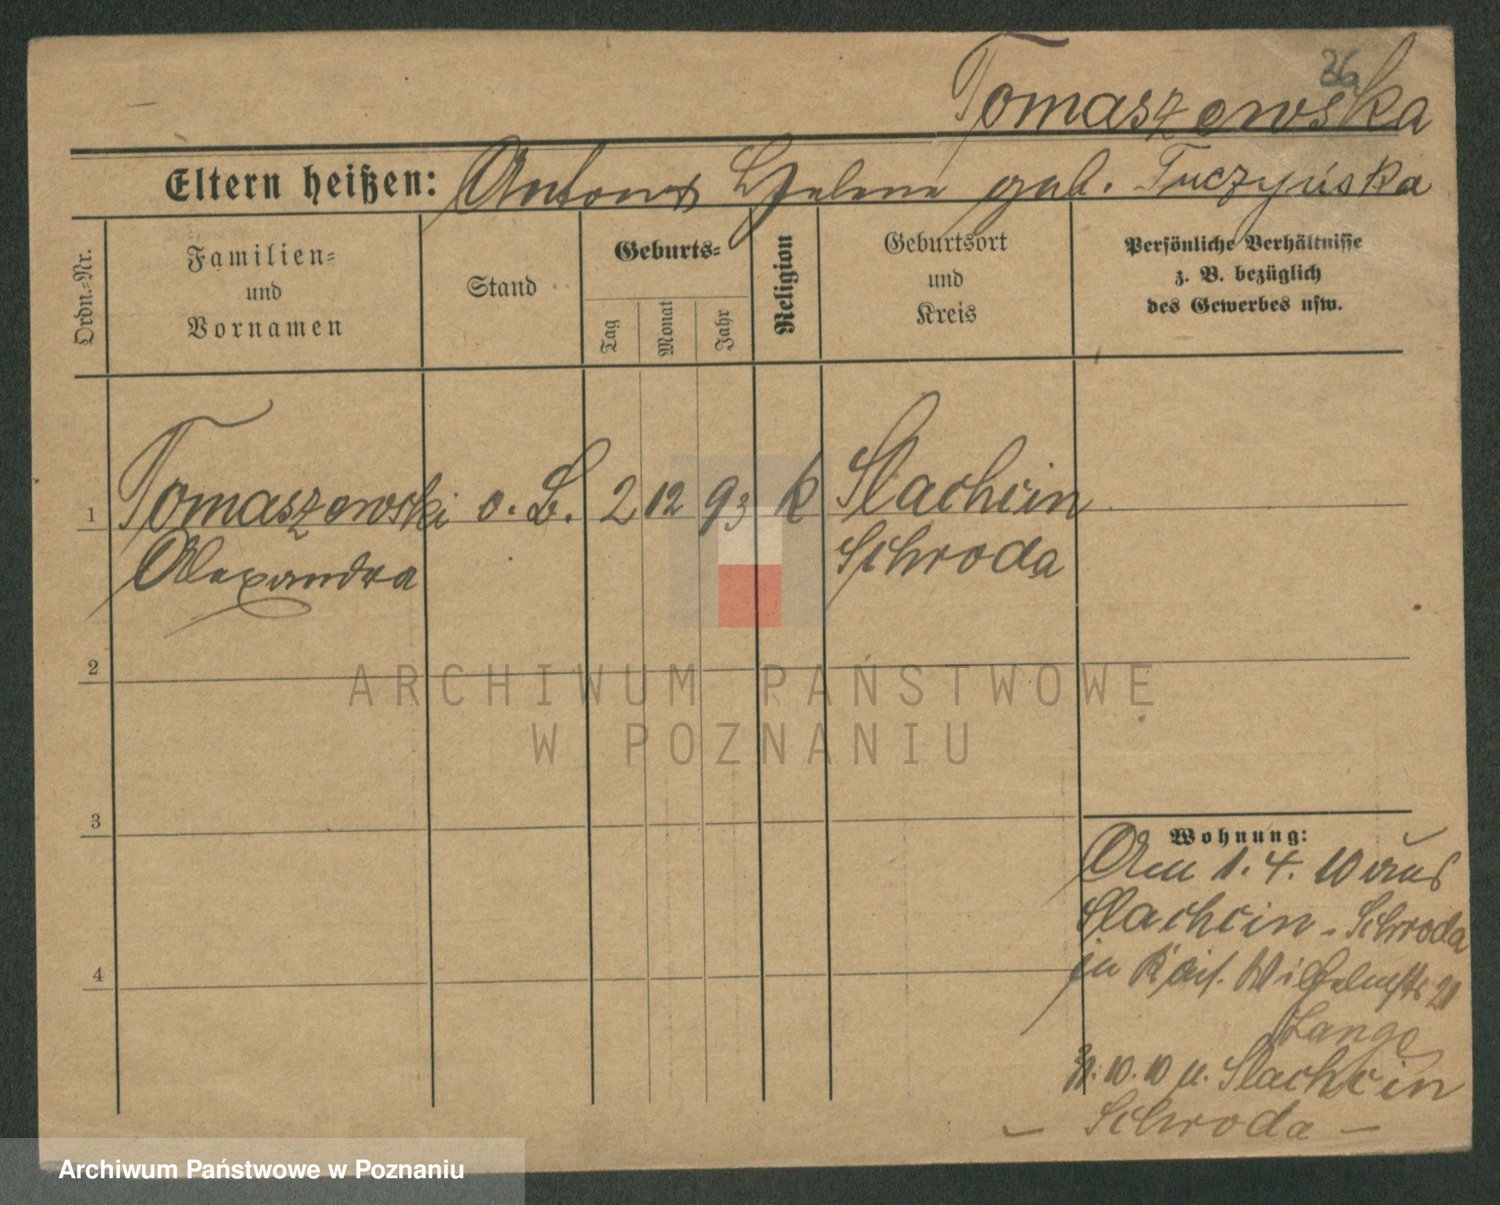 26
Tomaszewska
Eltern heißen: Anton & Helene geb. Tuczyńska
Ordn.-Nr.
Familien-
und
Vornamen
Stand
Geburts-
Tag
Monat
Jahr
Religion
Geburtsort
und
Kreis
Persönliche Verhältnisse
z. B. bezüglich
des Gewerbes usw.
1 Tomaszewski o. B. 2 12 93 k Slachcin
Alexandra Schroda
2
3
4
Wohnung:
Am 1. 4. 10 aus
Slachcin - Schroda
in Kais. Wilhelmstr 21
Lange
31. 10. 10 n. Slachcin
- Schroda -
ARCHIWUM PAŃSTWOWE
W POZNANIU
Archiwum Państwowe w Poznaniu